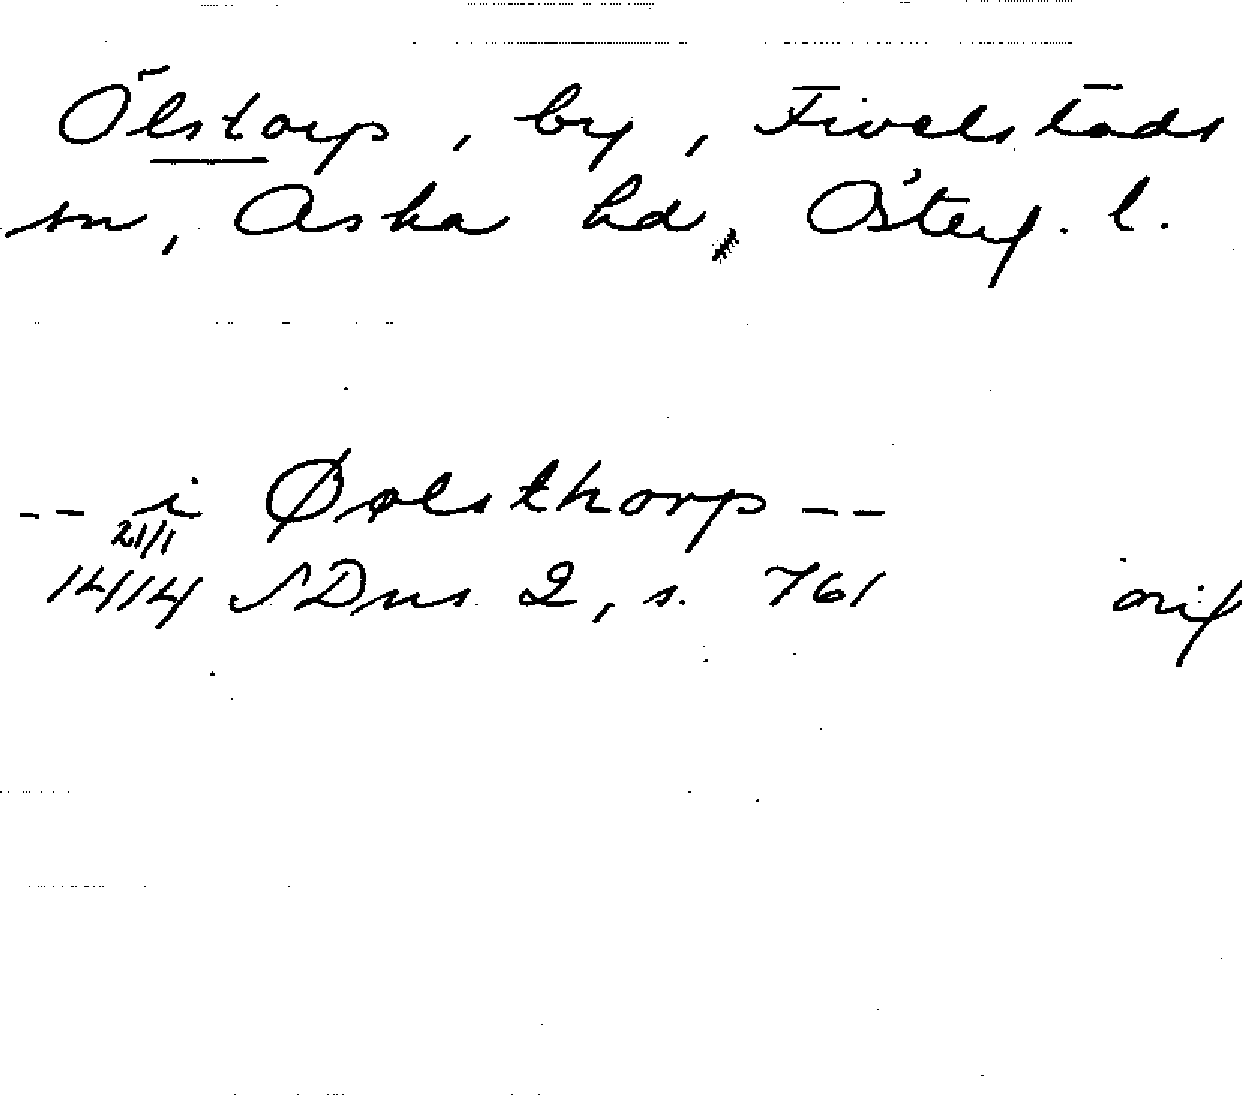 Ölstorp, by, Fivelstads
sn, Aska hd, Österg. l.
-- i Øølsthorp --
21/1
1414 SDns 2, s. 761 orig